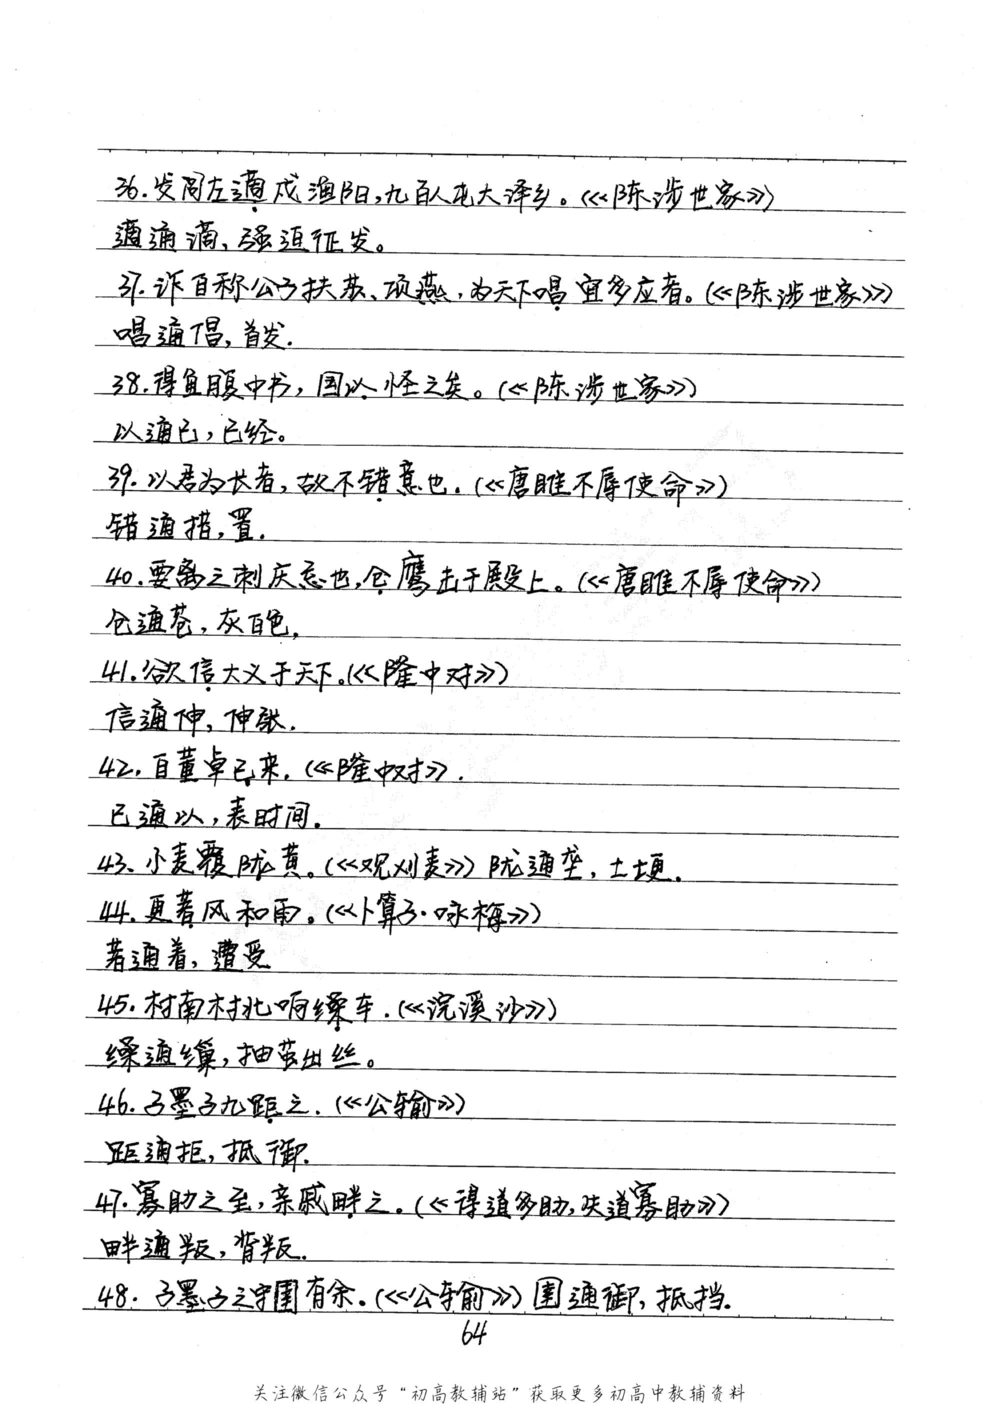 36.发闾左適戍渔阳,九百人屯大泽乡。(《陈涉世家》)
適通谪、强迫征发。
37.诈自称公子扶苏、项燕,为天下唱宜多应者。(《陈涉世家》)
唱通倡,首发.
38.得鱼腹中书,固以怪之矣。(《陈涉世家》)
以通已,已经。
39.以君为长者,故不错意也.(《唐雎不辱使命》)
错通措,置.
40.要离之刺庆忌也,仓鹰击于殿上。(《唐雎不辱使命》)
仓通苍,灰白色,
41.欲信大义于天下.(《隆中对》)
信通伸,伸张.
42.自董卓已来.(《隆中对》).
已通以,表时间.
43、小麦覆陇黄。(《观刈麦》)陇通垄,土埂.
44.更著风和雨。(《卜算子·咏梅》)
著通着,遭受
45.村南村北响缲车.(《浣溪沙》)
缲通缫,抽茧出丝。
46.子墨子九距之.(《公输》)
距通拒,抵御.
47.寡助之至,亲戚畔之.(《得道多助,失道寡助》)
畔通叛,背叛.
48.子墨子之守圉有余.(《公输》)圉通御,抵挡.
64
关注微信公众号“初高教辅站”获取更多初高中教辅资料